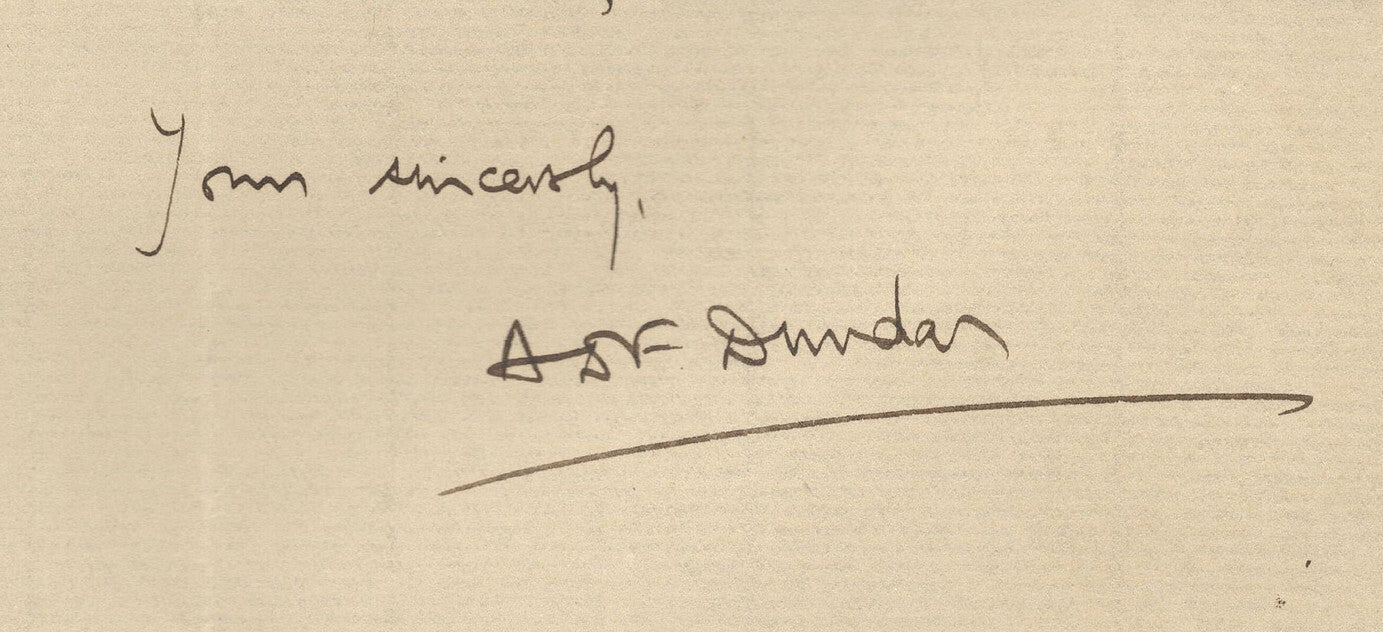 Yours sincerely,
A D F Dundas